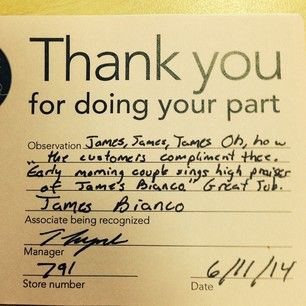 Thank you
for doing your part
Observation James, James, James Oh, how
" the customers compliment thee.
Early morning couple sings high praises
of James Bianco." Great Job.
James Bianco
Associate being recognized
Manager
791 6/11/14
Store number Date